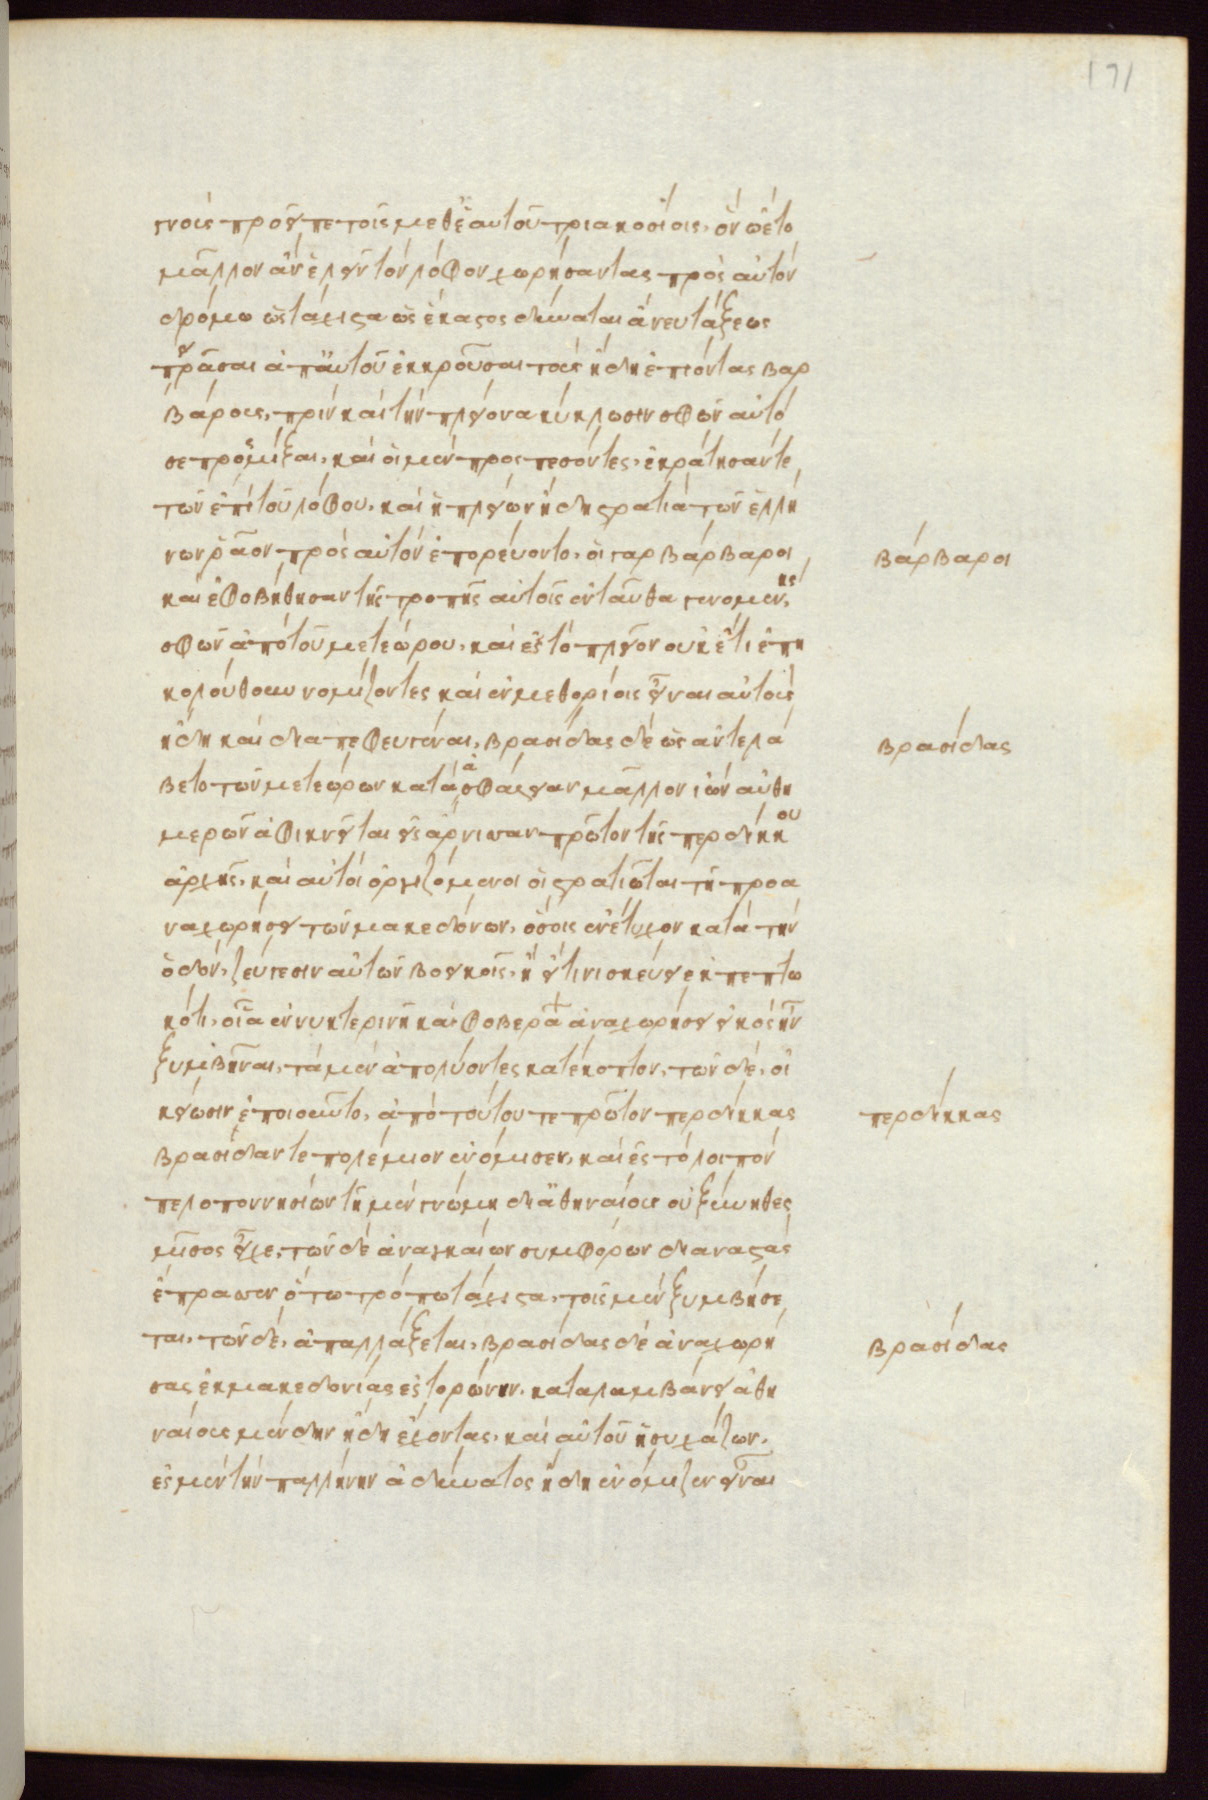 171
γνοὺς προεῖπε τοῖς μεθ' ἑαυτοῦ τριακοσίοις, ὃν ᾤετο
μᾶλλον ἂν ἑλεῖν τὸν λόφον χωρήσαντας πρὸς αὐτὸν
δρόμω ὡς τάχιστα ὡς ἕκαστος δύναται ἄνευ τάξεως
πειρᾶσαι ἀπ' αὐτοῦ ἐκκροῦσαι τοὺς ἤδη ἐπιόντας βαρ
βάρους, πρὶν καὶ τὴν πλείονα κύκλωσιν σφῶν αὐτό
σε προσμίξαι, καὶ οἱ μὲν προσπεσόντες, ἐκράτησάν τε
τῶν ἐπὶ τοῦ λόφου, καὶ ἡ πλείων ἤδη στρατιὰ τῶν ἑλλή
νων ῥᾶον πρὸς αὐτὸν ἐπορεύοντο, οἱ γὰρ βάρβαροι
καὶ ἐφοβήθησαν τῆς τροπῆς αὐτοῖς ἐνταῦθα γενομένης
σφῶν ἀπὸ τοῦ μετεώρου, καὶ ἐς τὸ πλεῖον οὐκέτι ἐπη
κολούθουν νομίζοντες καὶ ἐν μεθορίοις εἶναι αὐτοὺς
ἤδη καὶ διαπεφευγέναι, βρασίδας δὲ ὡς ἀντελά
βετο τῶν μετεώρων κατὰ ἀσφάλειαν μᾶλλον ἰὼν αὐθη
μερὸν ἀφικνεῖται εἰς ἄρνισαν πρῶτον τῆς περδίκκου
ἀρχῆς, καὶ αὐτοὶ ὀργιζόμενοι οἱ στρατιῶται τῆ προα
ναχωρήσει τῶν μακεδόνων, ὅσοις ἐνέτυχον κατὰ τὴν
ὁδὸν, ζεύγεσιν αὐτῶν βοεικοῖς, ἢ εἴ τινι σκεύει ἐκπεπτω
κότι, οἷα ἐν νυκτερινῆ καὶ φοβερᾶ ἀναχωρήσει εἰκὸς ἦν
ξυμβῆναι, τὰ μὲν ἀπολύοντες κατέκοπτον, τῶν δὲ, οἰ
κείωσιν ἐποιοῦντο, ἀπὸ τούτου τε πρῶτον περδίκκας
βρασίδαν τε πολέμιον ἐνόμισεν, καὶ ἐς τὸ λοιπὸν
πελοποννησίων τῆ μὲν γνώμη δι' ἀθηναίους οὐ ξύνηθες
μῖσος εἶχε, τῶν δὲ ἀναγκαίων συμφόρων διαναστὰς
ἔπρασσεν ὅτω τρόπω τάχιστα, τοῖς μὲν ξυμβήσε
ται, τῶν δὲ, ἀπαλλάξεται, βρασίδας δὲ ἀναχωρή
σας ἐκ μακεδονίας ἐς τορώνην, καταλαμβάνει ἀθη
ναίους μένδην ἤδη ἔχοντας, καὶ αὐτοῦ ἡσυχάζων,
ἐς μὲν τὴν παλλήνην ἀδύνατος ἤδη ἐνόμιζεν εἶναι
βάρβαροι
βρασίδας
περδίκκας
βρασίδας